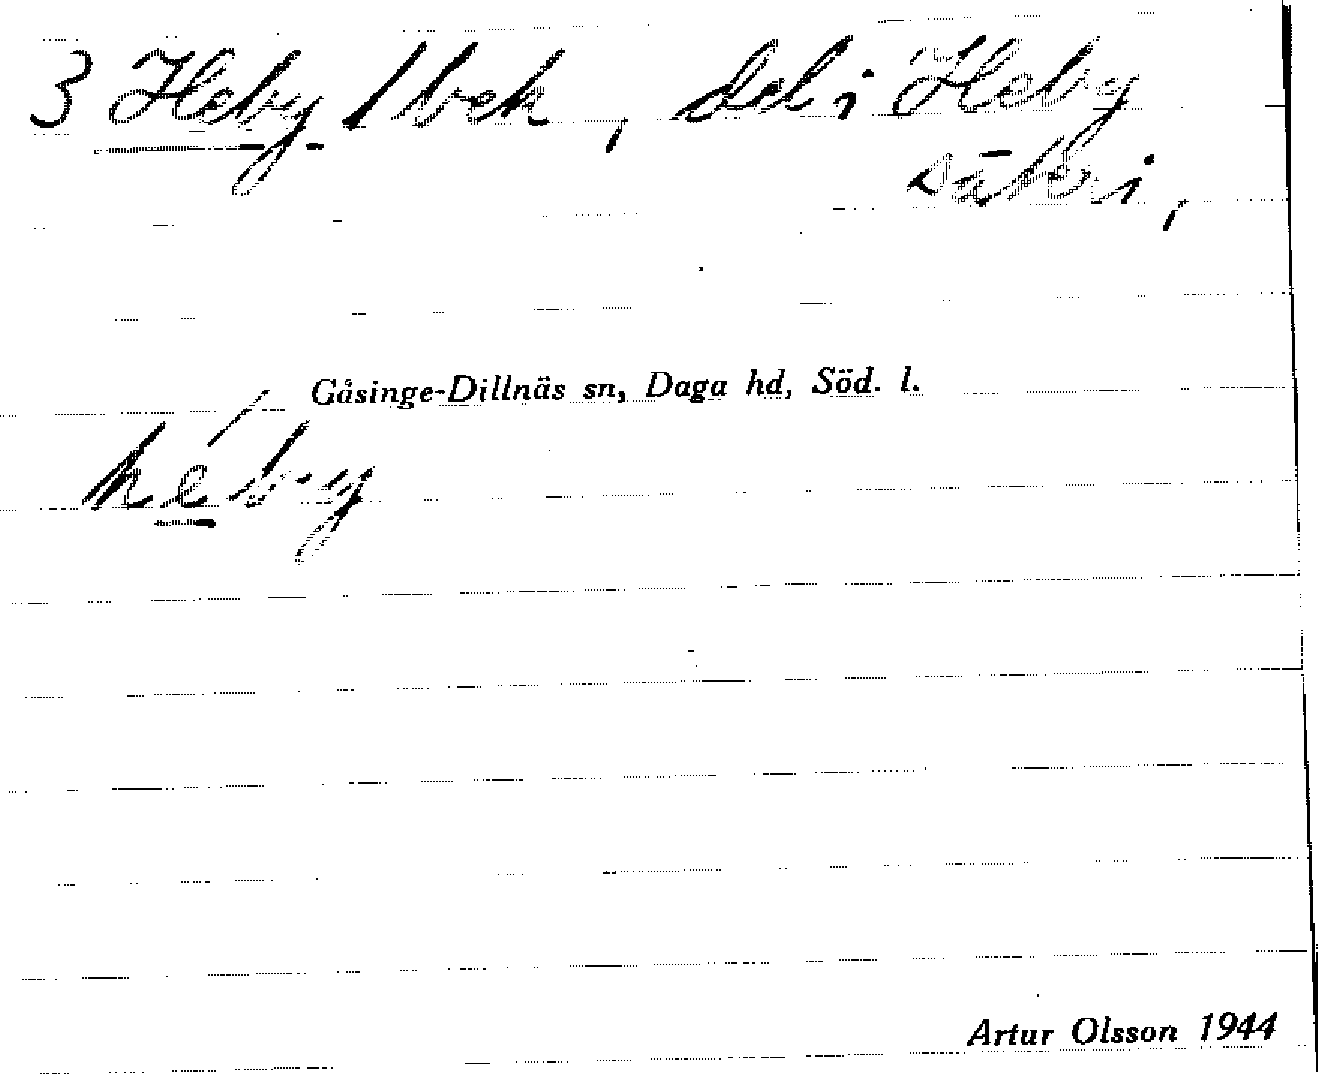 3 Heby /bek, del i Heby
säteri,
Gåsinge-Dillnäs sn, Daga hd, Söd. l.
héby
Artur Olsson 1944